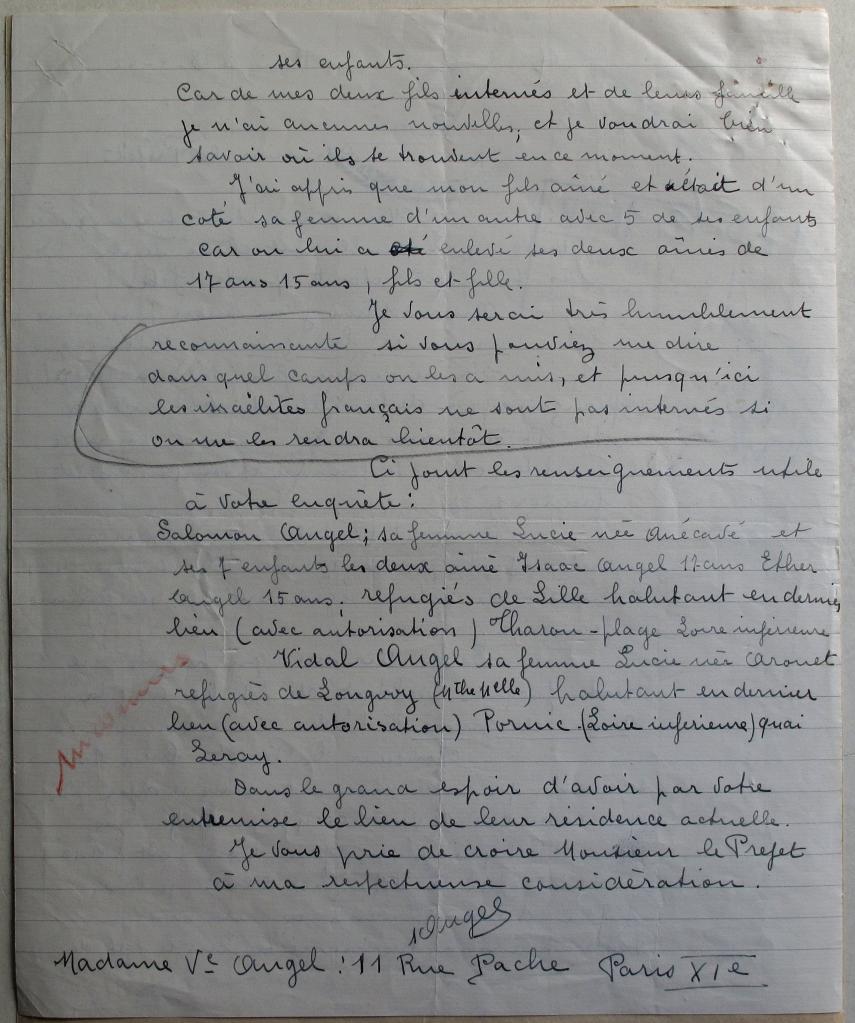 ses enfants.
Car de mes deux fils internés et de leurs famille
je n'ai aucunes nouvelles, et je voudrai bien
savoir où ils se trouvent en ce moment.
J'ai appris que mon fils ainé et était d'un
coté sa femme d'un autre avec 5 de ses enfants
car on lui a enlevé ses deux aînés de
17 ans 15 ans, fils et fille.
Je vous serai très humblement
reconnaissante si vous pouviez me dire
dans quel camps on les a mis, et puisqu'ici
les israëlites français ne sont pas internés si
on me les rendra bientôt.
Ci joint les renseignements utile
à votre enquête:
Salomon Angel; sa femme Lucie née et
ses 7 enfants les deux ainé Isaac Angel 17 ans Ether
Angel 15 ans, refugiés de Lille habitant en dernier
lieu (avec autorisation) Tharon-plage Loire inférieure
Vidal Angel sa femme Lucie née Arouet
refugiés de Longwy (Mthe Mlle) habitant en dernier
lieu (avec autorisation) Pornic (Loire inferieure) quai
Leray.
Dans le grand espoir d'avoir par votre
entremise le lieu de leur résidence actuelle.
Je vous prie de croire Monsieur le Prefet
à ma respectueuse considèration.
Angel
Madame Ve Angel: 11 Rue Pache Paris XIe